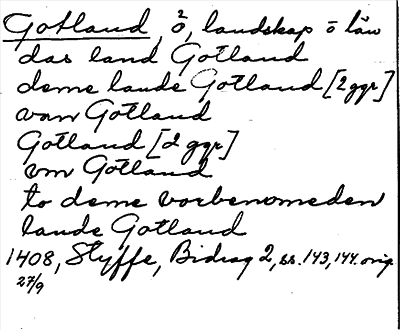 Gotland, ö, landskap o län
das land Gotland
deme lande Gotland [2 ggr]
van Gotland
Gotland [2 ggr]
vm Gotland
to deme vorbenomeden
lande Gotland
1408, Styffe, Bidrag 2, ss. 143, 144. orig
27/9